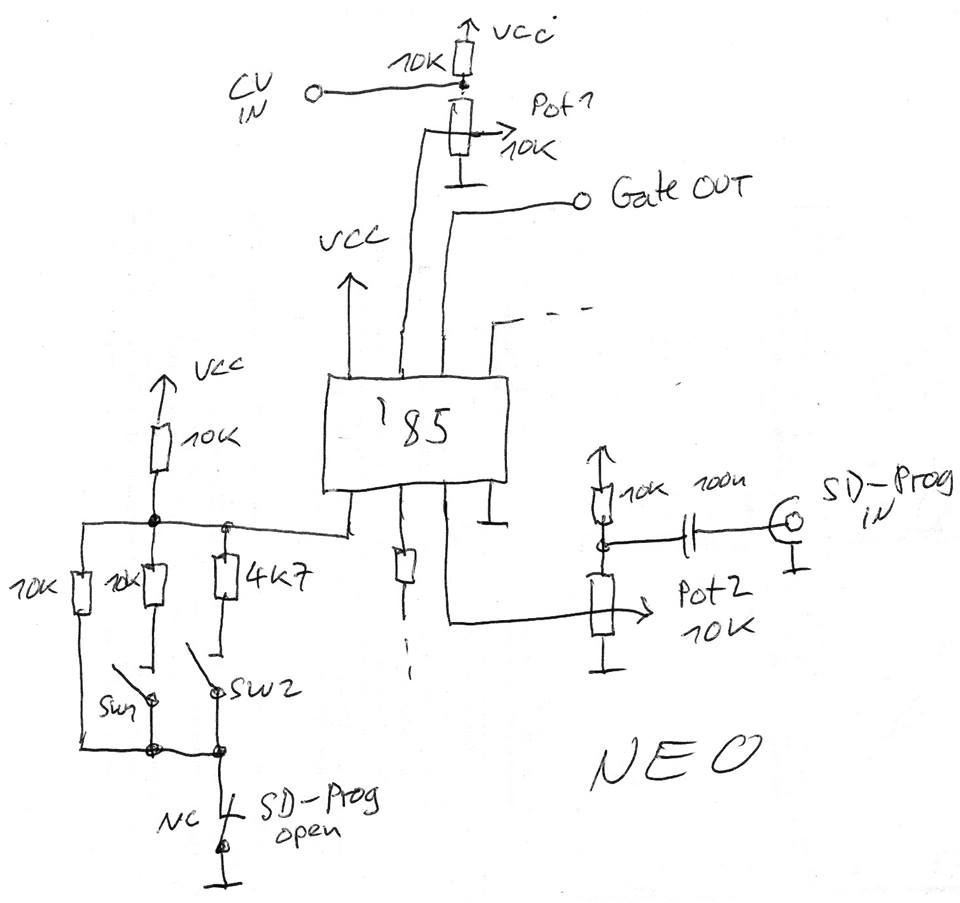 VCC
10K
CV
IN
Pot1
10K
Gate OUT
VCC
VCC
10K
'85
10K
100n
SD-Prog
IN
10K
10K
4K7
Pot2
10K
SW1
SW2
NEO
NC
SD-Prog
open